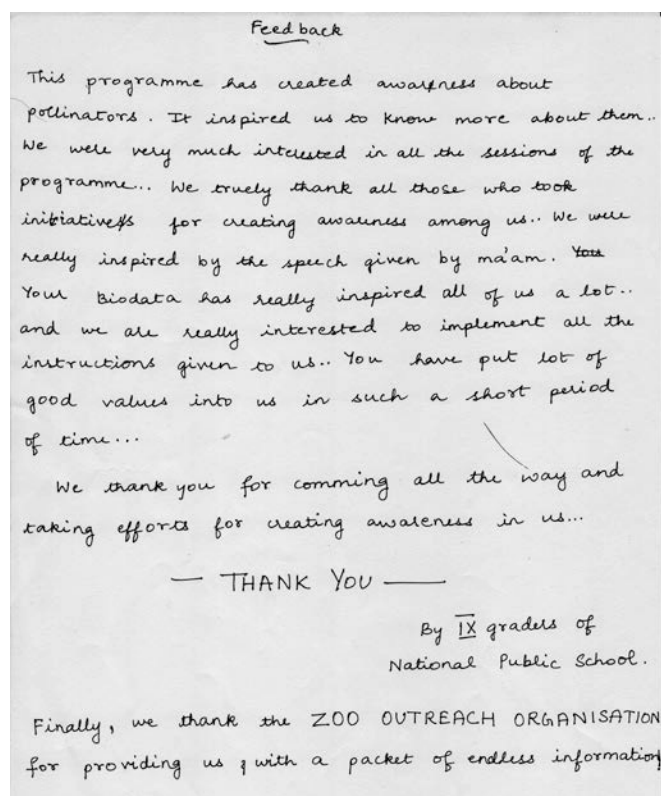 Feedback
This programme has created awareness about
pollinators. It inspired us to know more about them..
We were very much interested in all the sessions of the
programme... We truely thank all those who took
initiatives for creating awareness among us.. We were
really inspired by the speech given by ma'am. You
Your Biodata has really inspired all of us a lot..
and we are really interested to implement all the
instructions given to us.. You have put lot of
good values into us in such a short period
of time...
We thank you for comming all the way and
taking efforts for creating awareness in us...
— THANK YOU —
By IX graders of
National Public School.
Finally, we thank the ZOO OUTREACH ORGANISATION
for providing us with a packet of endless information